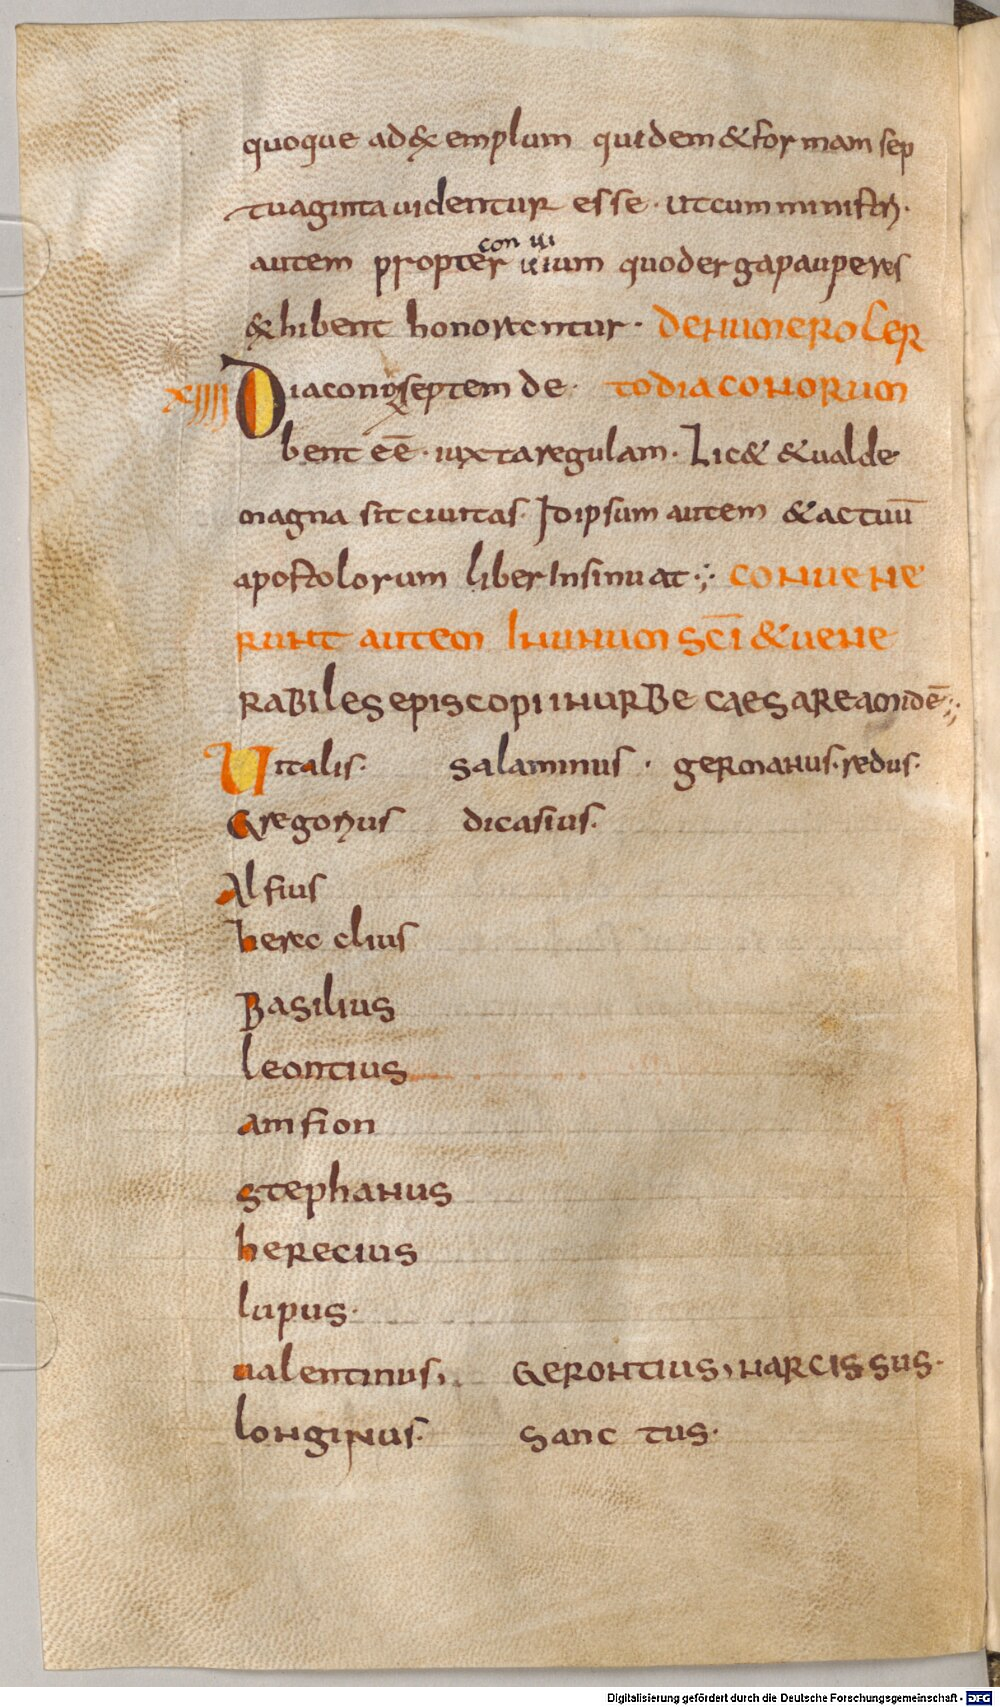 quoque ad&exemplum quidem & formam sep
tuaginta uidentur esse · ut cumministri ·
autem propter uium quod erga pauperes
con ui
exhibent honorentur · DE NUMERO CER
XIIII Diaconi septem de · TO DIACONORUM
bent eē · iuxta regulam · Lic& & ualde
magna sit ciuitas · Id ipsum autem & actuū
apostolorum liber Insinuat · CONUENE
RUNT AUTEM IN UNUM SC̄I & UENE
RABILES EPISCOPI IN URBE CAESAREAM IDĒ
Uitalis · salaminus · germanus · redus ·
Gregorius dicasius ·
Alfius
herec clius
Basilius
leontius
amfion
stephanus
herecius
lupus ·
ualentinus, GERONTIUS, NARCISSUS ·
longinus · Sanc tus ·
Digitalisierung gefördert durch die Deutsche Forschungsgemeinschaft - DFG